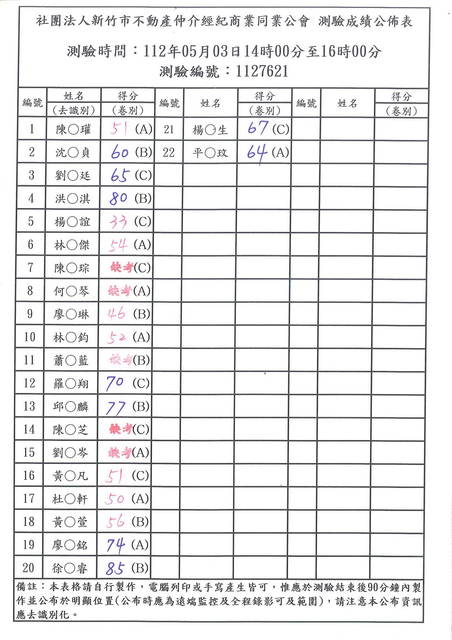 社團法人新竹市不動產仲介經紀商業同業公會 測驗成績公佈表
測驗時間：112年05月03日14時00分至16時00分
測驗編號：1127621
編號 姓名(去識別) 得分(卷別) 編號 姓名(去識別) 得分(卷別) 編號 姓名 得分(卷別)
1 陳〇瓘 51 (A) 21 楊〇生 67 (C)
2 沈〇貞 60 (B) 22 平〇玟 64 (A)
3 劉〇廷 65 (C)
4 洪〇淇 80 (B)
5 楊〇誼 33 (C)
6 林〇傑 54 (A)
7 陳〇琮 缺考 (C)
8 何〇琴 缺考 (A)
9 廖〇琳 46 (B)
10 林〇鈞 52 (A)
11 蕭〇藍 缺考 (B)
12 羅〇翔 70 (C)
13 邱〇麟 77 (B)
14 陳〇芝 缺考 (C)
15 劉〇岑 缺考 (A)
16 黃〇凡 51 (C)
17 杜〇軒 50 (A)
18 黃〇萱 56 (B)
19 廖〇銘 74 (A)
20 徐〇睿 85 (B)
備註：本表格請自行製作，電腦列印或手寫產生皆可，惟應於測驗結束後90分鐘內製
作並公布於明顯位置(公布時應為遠端監控及全程錄影可及範圍)，請注意本公布資訊
應去識別化。